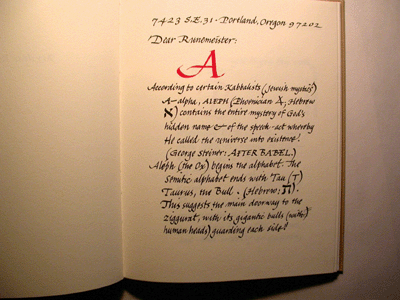 7423 S.E. 31 · Portland, Oregon 97202
Dear Runemeister:
A
According to certain Kabbalists (Jewish mystics)
A–alpha, ALEPH (Phoenician 𐤀, Hebrew
א) contains the entire mystery of God's
hidden name & of the speech-act whereby
He called the universe into existence!
(George Steiner: AFTER BABEL.)
Aleph (the Ox) begins the alphabet. The
Semitic alphabet ends with Tau (T)
Taurus, the Bull. (Hebrew: ת)
This suggests the main doorway to the
ziggurat, with its gigantic bulls (with
human heads) guarding each side!